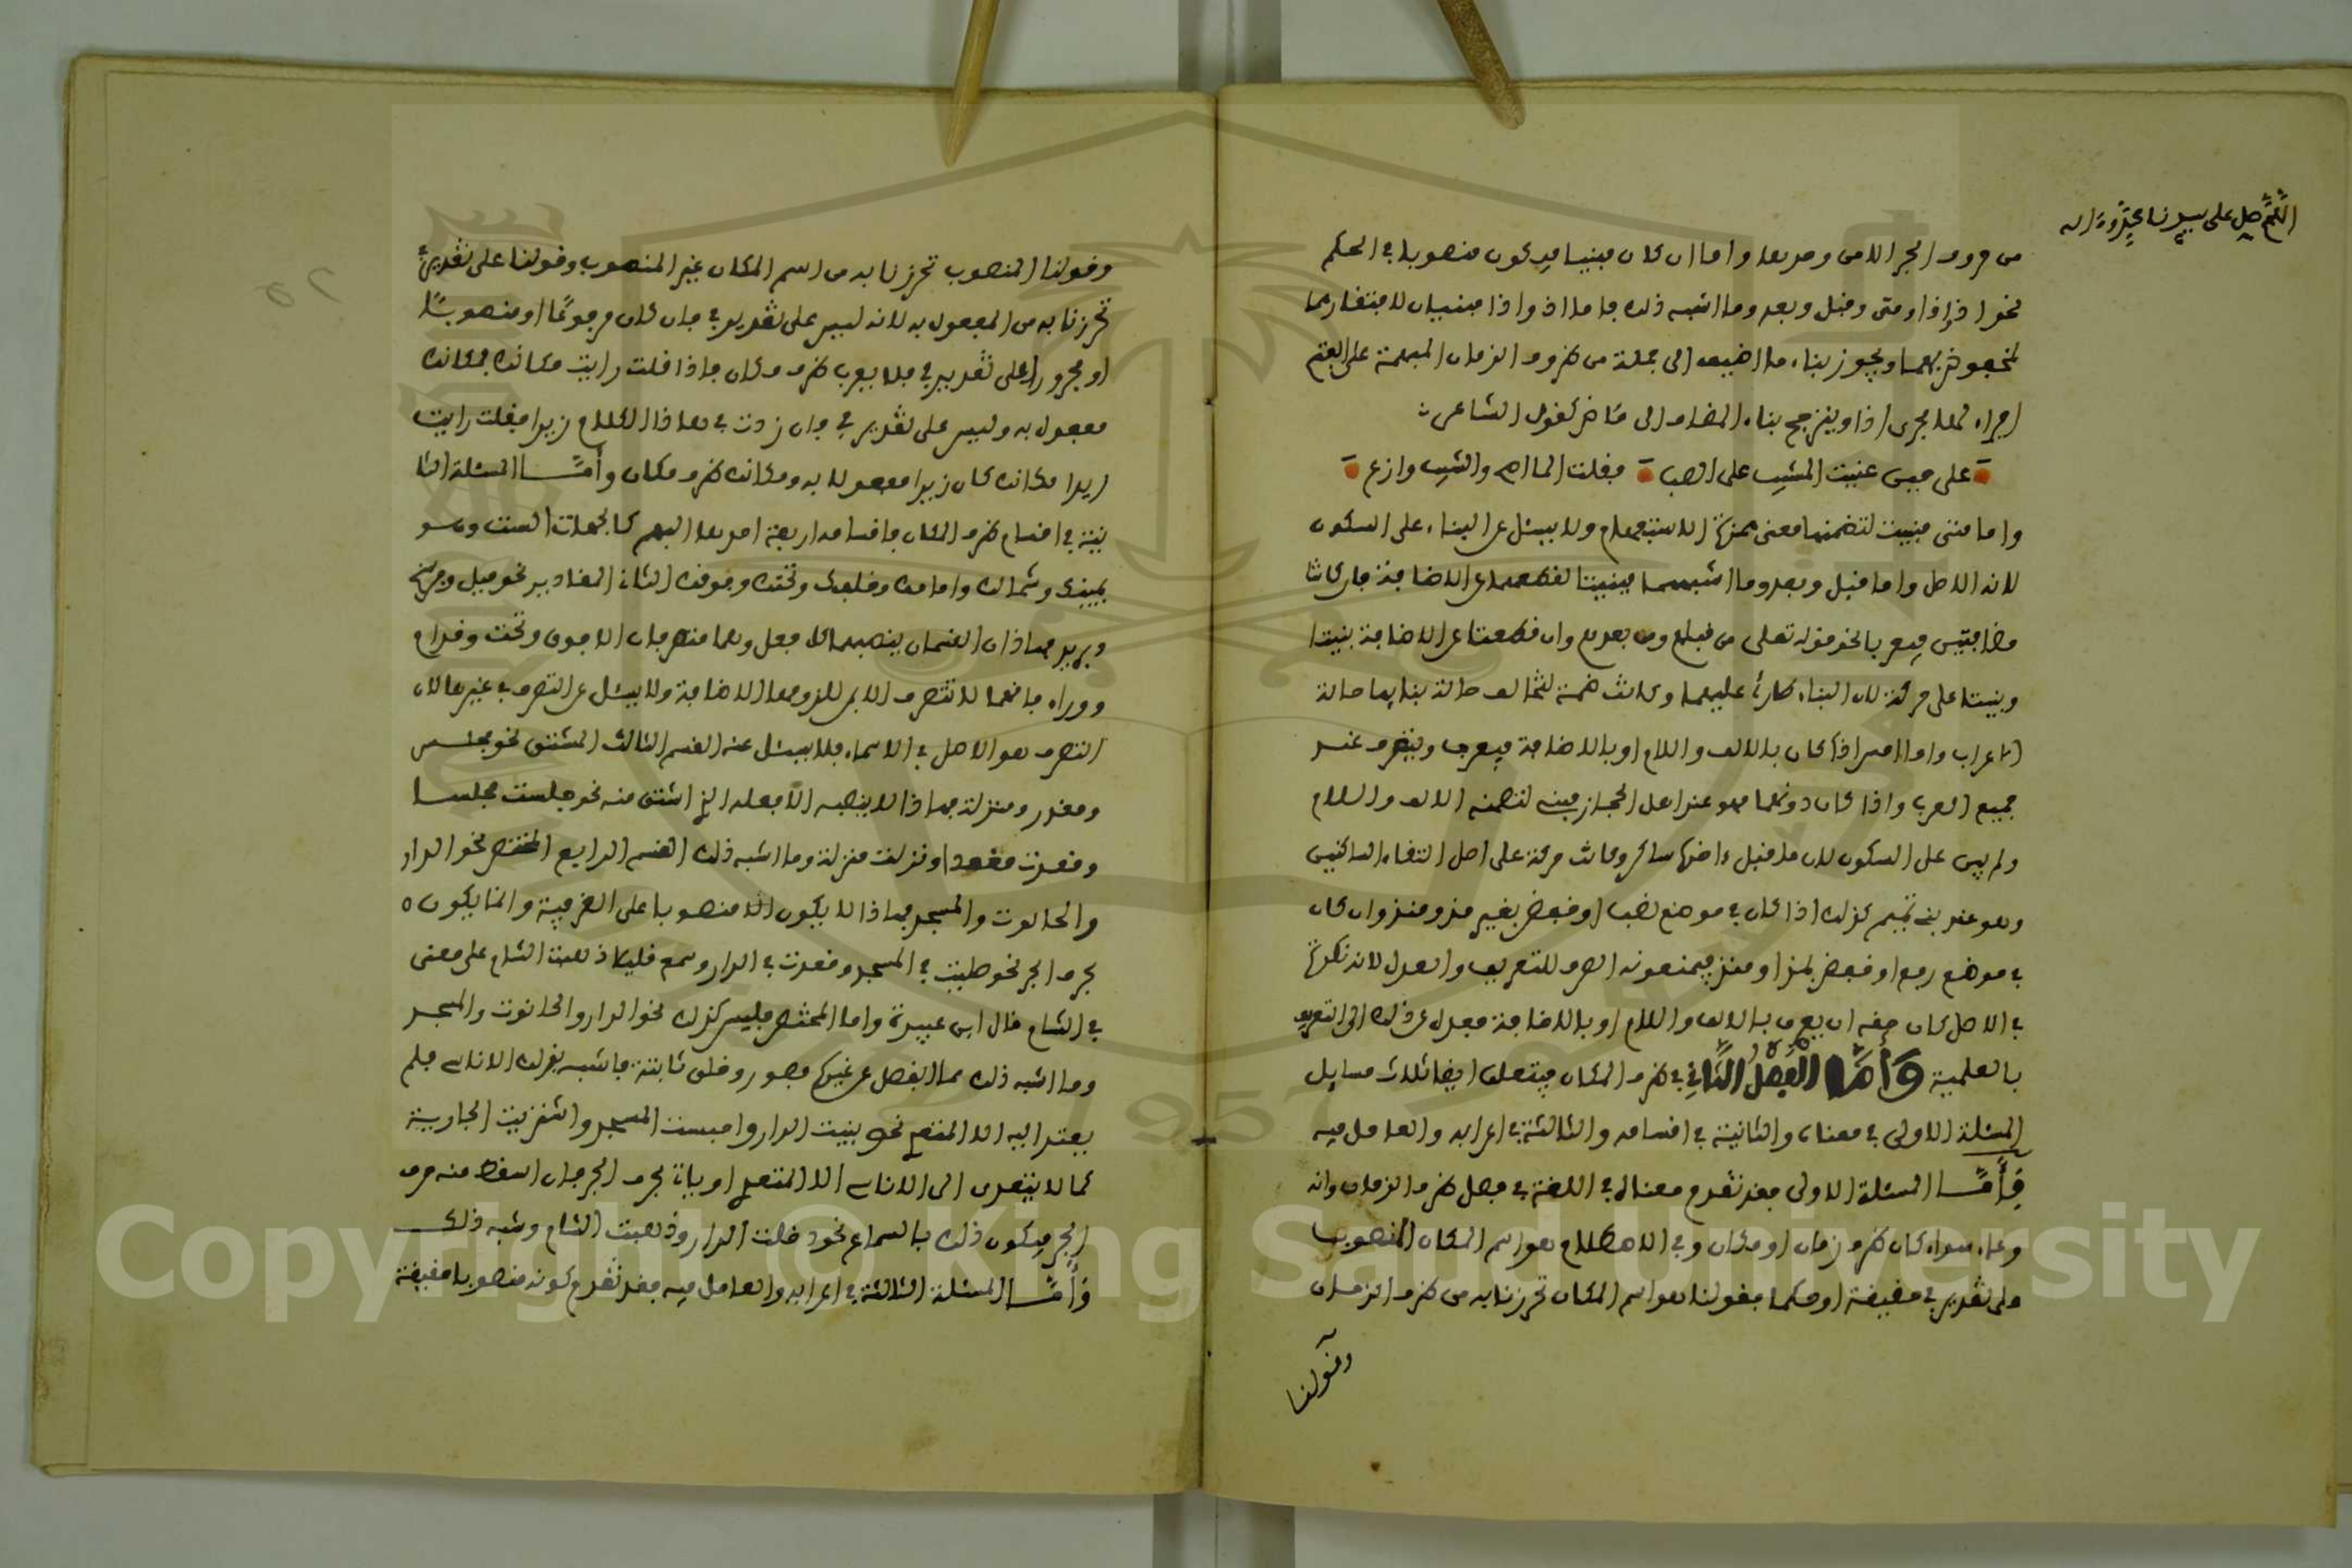 اللهم صل على سيدنا محمد وءاله
من حروف الجر الا من وحدها واما ان كان مبنيا فيكون منصوبا في الحكم
نحو اذ واذا ومتى وقبل وبعد وما اشبه ذلك فاما اذ واذا مبنيان لافتقارهما
لمخفوضيهما ويجوز بناء ما اضيف الى جملة من ظروف الزمان المبهمة على الفتح
اجراء لها مجرى اذا ويترجح بناء المضاف الى ماض كقول الشاعر
على حين عتبت المشيب على الصبا فقلت الما اصح والشيب وازع
واما متى فبنيت لتضمنها معنى همزة الاستفهام ولا يسئل عن البناء على السكون
لانه الاصل واما قبل وبعد وما اشبههما فبنيتا لقطعهما عن الاضافة فان كانتا
مضافتين فمعربان نحو قوله تعلى من قبلهم ومن بعدهم وان قطعتا عن الاضافة بنيتا
وبنيتا على حركة لان البناء طارئ عليهما وكانت ضمة لتخالف حالة بنايها حالة
اعرابها واما امس اذا كان بالالف واللام او بالاضافة فيعرب ويتصرف عند
جميع العرب واذا كان دونهما فهو عند اهل الحجاز مبني لتضمنه الالف واللام
ولم يبن على السكون لان ما قبل ءاخرها ساكن وكانت حركة على اصل التقاء الساكنين
وهو عند بني تميم كذلك اذا كان في موضع نصب او خفض بغير مذ ومنذ وان كان
في موضع رفع او خفض بمذ او منذ فيمنعونه الصرف للتعريف والعدل لانه نكرة
في الاصل كان حقه ان يعرف بالالف واللام او بالاضافة فعدل عن ذلك الى التعريف
بالعلمية وَأَمَّا الْفَصْلُ الثَّانِي في ظرف المكان فيتعلق ايضا ثلاث مسايل
المسئلة الاولى في معناه والثانية في اقسامه والثالثة في اعرابه والعامل فيه
فأمَّا المسئلة الاولى فقد تقدم معناه في اللغة في فصل ظرف الزمان وانه
وعاء سواء كان ظرف زمان او مكان وفي الاصطلاح هو اسم المكان المنصوب
على تقدير في حقيقة او حكما فقولنا هو اسم المكان تحرزنا به من ظرف الزمان
وقولنا
وقولنا المنصوب تحرزنا به من اسم المكان غير المنصوب وقولنا على تقدير في
تحرزنا به من المفعول به لانه ليس على تقدير في فان كان مرفوعا او منصوبا لا
او مجرورا على تقدير في فلا يعرب ظرف مكان فاذا قلت رايت مكانك فمكانك
مفعول به وليس على تقدير في وان زدت في هاذا الكلام زيدا فقلت رايت
زيدا مكانك كان زيدا مفعولا به ومكانك ظرف مكان وأمَّا المسئلة الثا
نية في اقسام ظرف المكان فاقسامه اربعة احدها المبهم كالجهات الست وهو
يمينك وشمالك وامامك وخلفك وتحتك وفوقك الثاني المقادير نحو ميل وفرسخ
وبريد فهاذان القسمان ينصبهما كل فعل وهما متصرفان الا فوق وتحت وقدام
ووراء فانها لا تتصرف الا بمن للزومها الاضافة ولا يسئل عن التصرف في غيرها لان
التصرف هو الاصل في الاسماء فلا يسئل عنه القسم الثالث المشتق نحو مجلس
ومقعد ومنزلة فهاذا لا ينصبه الا فعله الذي اشتق منه نحو جلست مجلسا
وقعدت مقعدا ونزلت منزلة وما اشبه ذلك القسم الرابع المختص نحو الدار
والحانوت والمسجد فهاذا لا يكون الا منصوبا على الظرفية وانما يكون
بحرف الجر نحو صليت في المسجد وقعدت في الدار وسمع قليلا ذهبت الشام على معنى
في الشام قال ابن عبيدة واما المختص فليس كذلك نحو الدار والحانوت والمسجد
وما اشبه ذلك مما انفصل عن غيره بصور وخلق ثابتة فاشبه بذلك الاناسي فلم
يتعد اليه الا المتعدي نحو بنيت الدار واحببت المسجد واشتريت الجارية
كما لا يتعدى الى الاناسي الا المتعدي او يات بحرف الجر فان اسقط منه حرف
الجر فيكون ذلك بالسماع نحو دخلت الدار وذهبت الشام وشبه ذلك
وأمَّا المسئلة الثالثة في اعرابه والعامل فيه فقد تقدم كونه منصوبا حقيقة
Copyright © King Saud University
1957